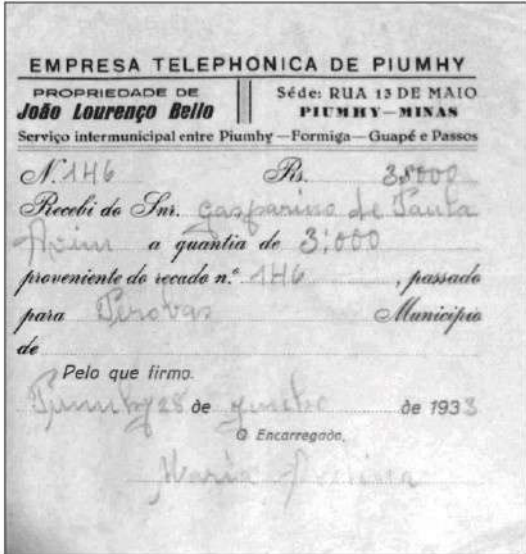 EMPRESA TELEPHONICA DE PIUMHY
PROPRIEDADE DE
João Lourenço Bello
Séde: RUA 13 DE MAIO
PIUMHY—MINAS
Serviço intermunicipal entre Piumhy—Formiga—Guapé e Passos
N. 146 Rs. 3$000
Recebi do Snr. Gasparino de Paula
a quantia de 3:000
proveniente do recado n.º 146, passado
para Perobas Municipio
de
Pelo que firmo.
Piumhy 28 de de 1933
O Encarregado,
Maria